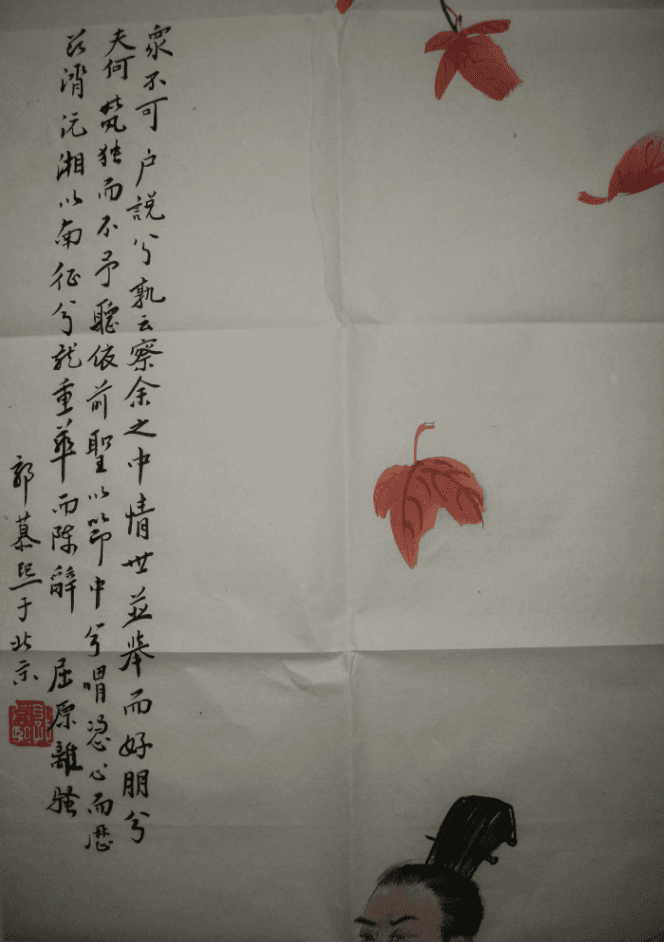 眾不可户說兮孰云察余之中情世並舉而好朋兮
夫何茕独而不予聽依前聖以節中兮喟憑心而歷
兹濟沅湘以南征兮就重華而陈辭 屈原離骚
郭慕熙于北京